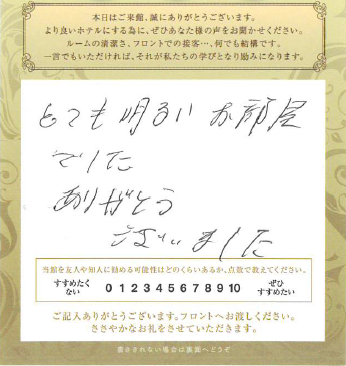 本日はご来館、誠にありがとうございます。
より良いホテルにする為に、ぜひあなた様の声をお聞かせください。
ルームの清潔さ、フロントでの接客…、何でも結構です。
一言でもいただければ、それが私たちの学びとなり励みになります。
とても明るいお部屋
でした
ありがとう
ございました
当館を友人や知人に勧める可能性はどのくらいあるか、点数で教えてください。
すすめたく
ない
0 1 2 3 4 5 6 7 8 9 10
ぜひ
すすめたい
ご記入ありがとうございます。フロントへお渡しください。
ささやかなお礼をさせていただきます。
書ききれない場合は裏面へどうぞ